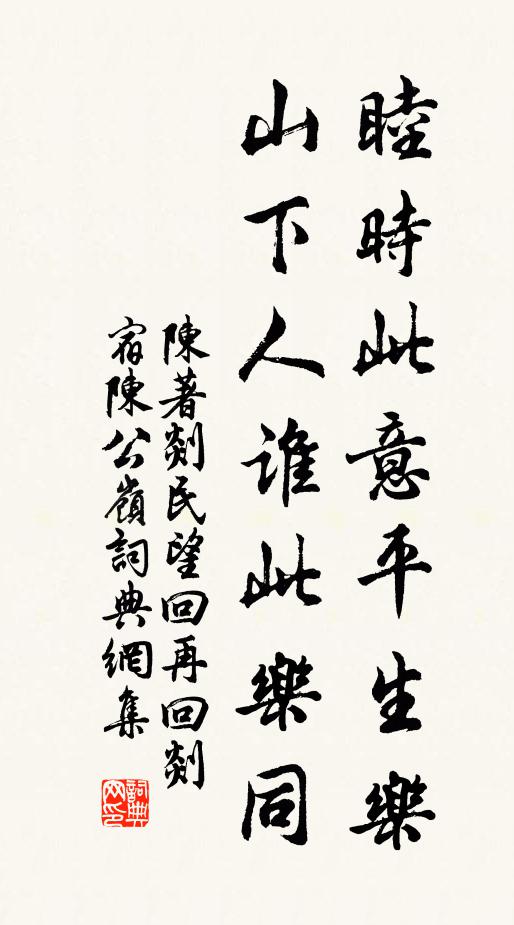 睦時此意平生樂
山下人誰此樂同
陳著剡民望回再回剡
宿陳公嶺詞典網集
詞典
网印